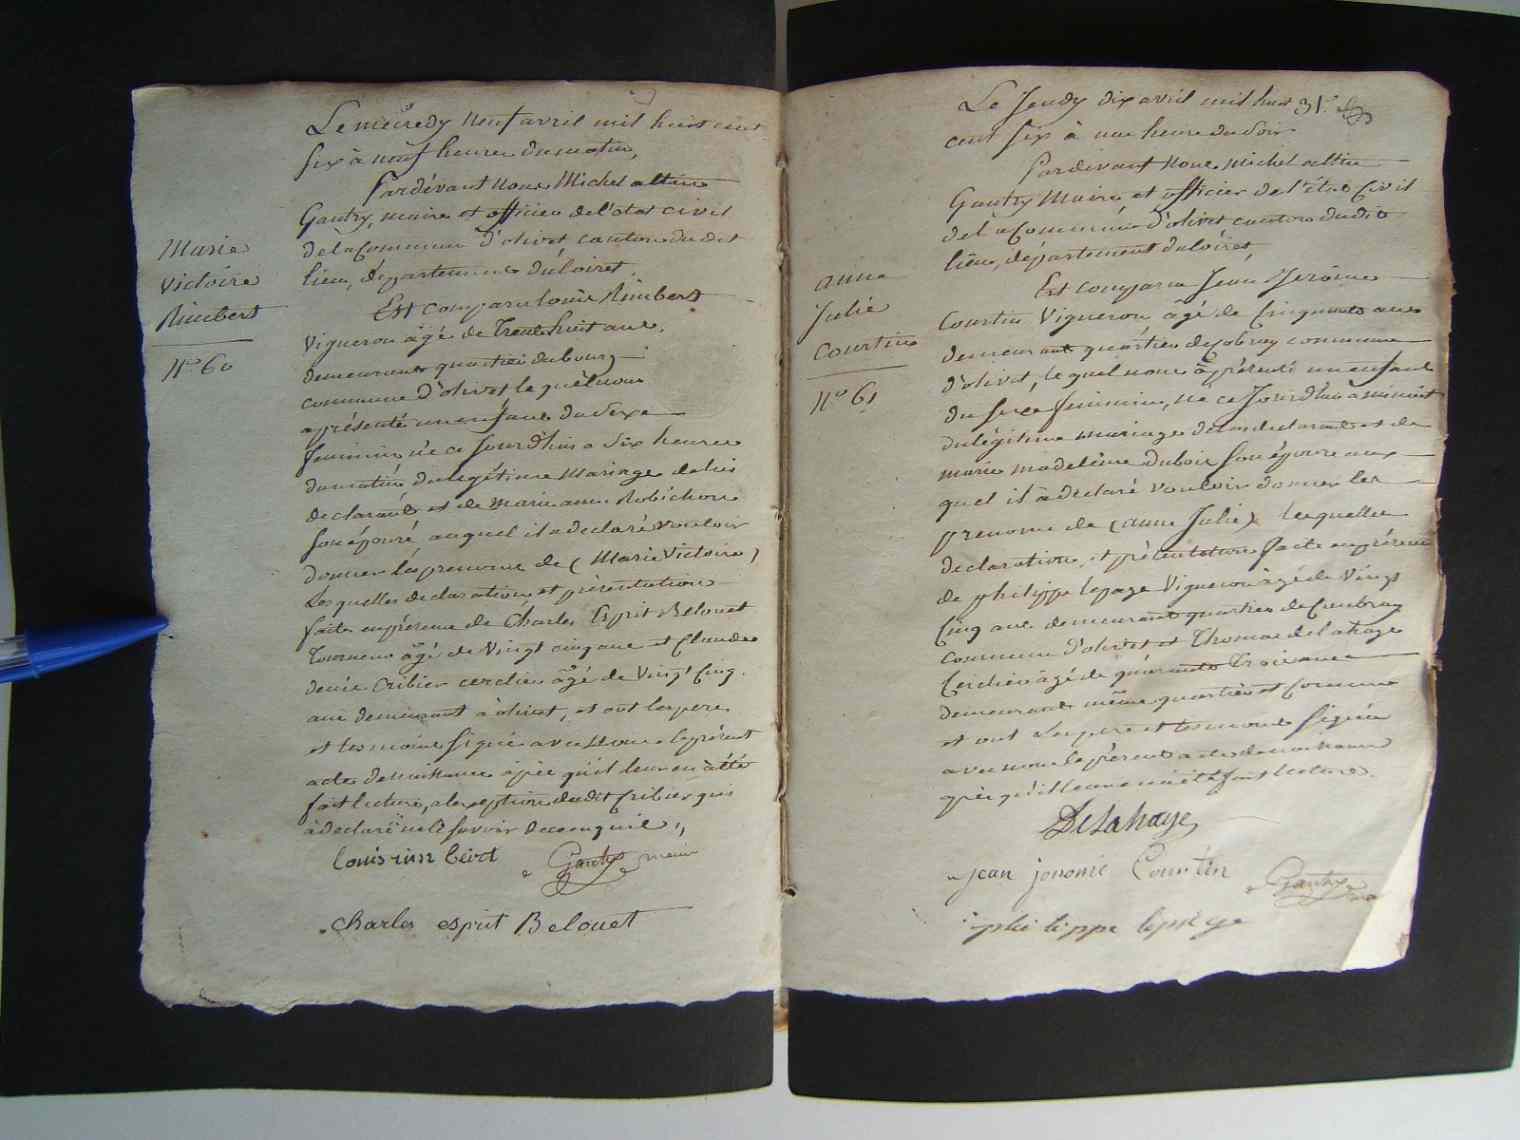 Marie
Victoire
Rimbert
N° 60
Le mecredy neuf avril mil huit cent
six à neuf heure du matin,
Pardévant nous Michel altin
Gautry, maire et officier de l'état civil
de la Commune d'olivet, canton du dit
lieu, département du loiret.
Est comparu louis Rimbert
Vigneron âgé de Trente huit ans,
demeurant quartier du bourg
commune d'olivet lequel nous
a présenté un enfant du Sexe
feminin né ce jourd'hui a Six heures
du matin du légitime Mariage de lui
declarant et de marie anne Robichon
son épouse auquel il a declaré vouloir
donner les prenoms de (Marie Victoire)
Lesquelles declaration et présentation
faite en présence de Charles Esprit Belouet
Tourneur âgé de Vingt cinq ans et Claude
denis Cribier cerclier âgé de Vingt Cinq
ans demeurant à olivet, et ont les pere
et tesmoins signé avec nous le présent
acte de naissance après qu'il leur en à été
fait lecture, a lexeption dudit Cribier qui
à declaré ne le savoir de ce enquis,
louis rimbert
Gautry maire
charles esprit Belouet
31.e
anne
Julie
Courtin
N° 61
Le Jeudy dix avril mil huit
cent six à une heure du Soir
Pardevant Nous michel altin
Gautry Maire et officier de l'état Civil
de la Commune d'olivet canton dudit
lieu, département du loiret,
Est comparu Jean Jérôme
Courtin Vigneron âgé de Cinquante ans
demeurant quartier de commune
d'olivet, lequel nous à présenté un enfant
du sexe feminin, né ce Jourd'hui a minuit
du légitime mariage de lui declarant et de
marie madeleine dubois son épouse au
quel il à declaré vouloir donner les
prenoms de (anne Julie) lesquelles
declaration, et présentation faite en présence
de philippe lepage Vigneron âgé de Vingt
Cinq ans demeurant quartier de Coubray
commune d'olivet et Thomas delahaye
Cerclier âgé de quarante Trois ans
demeurant même quartier et Commune
et ont les pere et tesmoins signé
avec nous le présent acte de naissance
après qu'il leur en à été fait lecture.
Delahaye
jean joromé Courtin
Gautry
phi lippe lepage